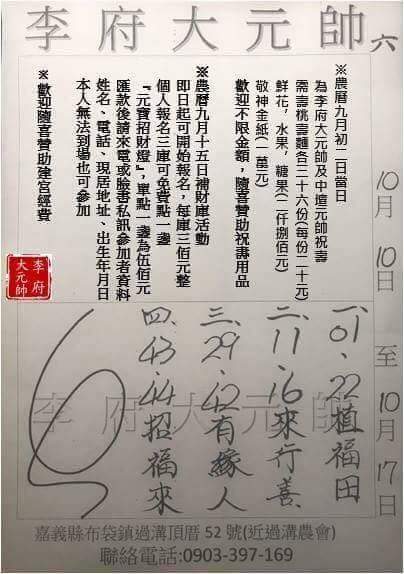 李府大元帥
六
10月10日至10月17日
※農曆九月初二日當日
為李府大元帥及中壇元帥祝壽
需壽桃壽麵各三十六份(每份二十元)
鮮花,水果,糖果(二仟捌佰元)
敬神金紙(一萬元)
歡迎不限金額,隨喜贊助祝壽用品
※農曆九月十五日補財庫活動
即日起可開始報名,每庫三佰元整
個人報名三庫可免費點一盞
『元寶招財燈』,單點一盞為伍佰元
匯款後請來電或臉書私訊參加者資料
姓名、電話、現居地址、出生年月日
本人無法到場也可參加
※歡迎隨喜贊助建宮經費
李府
大元帥
李府大元帥
一、01、22植福田
二、11、16來行善
三、29、42有緣人
四、43、44招福來
嘉義縣布袋鎮過溝頂厝52號(近過溝農會)
聯絡電話:0903-397-169